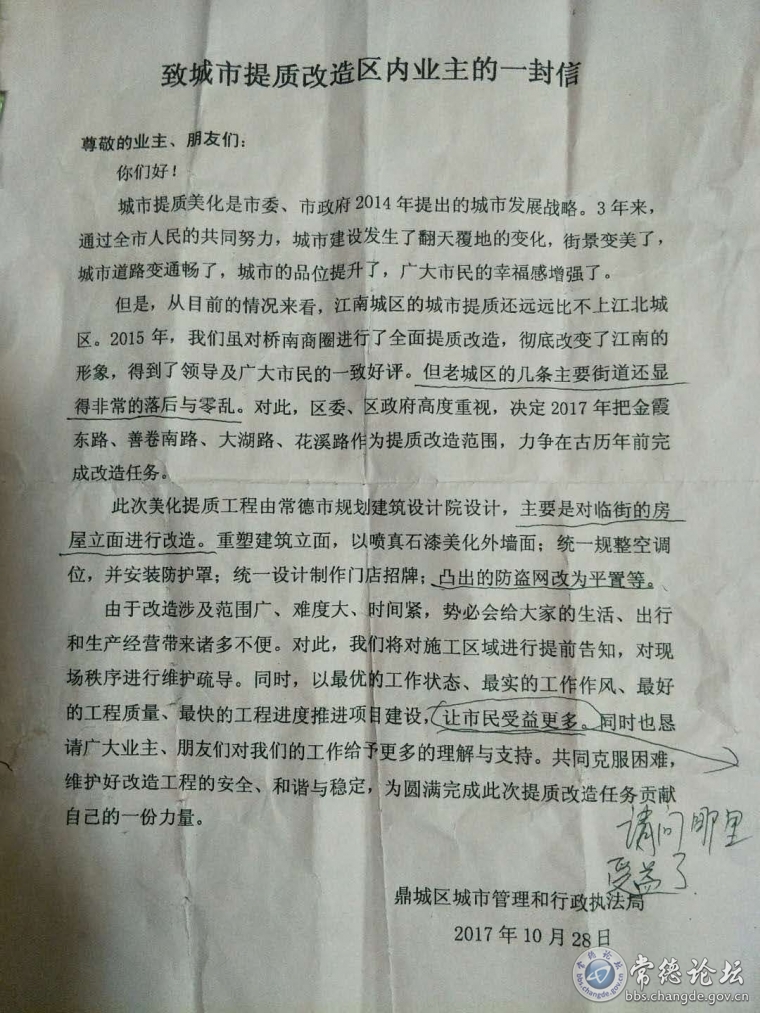 致城市提质改造区内业主的一封信
尊敬的业主、朋友们：
你们好！
城市提质美化是市委、市政府 2014 年提出的城市发展战略。3 年来，
通过全市人民的共同努力，城市建设发生了翻天覆地的变化，街景变美了，
城市道路变通畅了，城市的品位提升了，广大市民的幸福感增强了。
但是，从目前的情况来看，江南城区的城市提质还远远比不上江北城
区。2015 年，我们虽对桥南商圈进行了全面提质改造，彻底改变了江南的
形象，得到了领导及广大市民的一致好评。但老城区的几条主要街道还显
得非常的落后与零乱。对此，区委、区政府高度重视，决定 2017 年把金霞
东路、善卷南路、大湖路、花溪路作为提质改造范围，力争在古历年前完
成改造任务。
此次美化提质工程由常德市规划建筑设计院设计，主要是对临街的房
屋立面进行改造。重塑建筑立面，以喷真石漆美化外墙面；统一规整空调
位，并安装防护罩；统一设计制作门店招牌；凸出的防盗网改为平置等。
由于改造涉及范围广、难度大、时间紧，势必会给大家的生活、出行
和生产经营带来诸多不便。对此，我们将对施工区域进行提前告知，对现
场秩序进行维护疏导。同时，以最优的工作状态、最实的工作作风、最好
的工程质量、最快的工程进度推进项目建设，让市民受益更多。同时也恳
请广大业主、朋友们对我们的工作给予更多的理解与支持。共同克服困难，
维护好改造工程的安全、和谐与稳定，为圆满完成此次提质改造任务贡献
自己的一份力量。
请问哪里
受益了
鼎城区城市管理和行政执法局
2017 年 10 月 28 日
常德论坛
bbs.changde.gov.cn